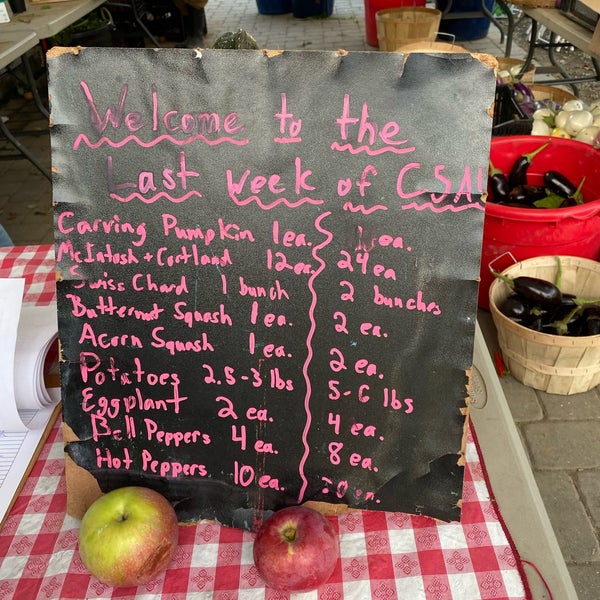 Welcome to the
Last week of CSA!
Carving Pumpkin 1 ea. ea.
McIntosh + Cortland 12 ea. 24 ea
Swiss Chard 1 bunch 2 bunches
Butternut Squash 1 ea. 2 ea.
Acorn Squash 1 ea. 2 ea.
Potatoes 2.5-3 lbs 5-6 lbs
Eggplant 2 ea. 4 ea.
Bell Peppers 4 ea. 8 ea.
Hot Peppers 10 ea. 20 ea.